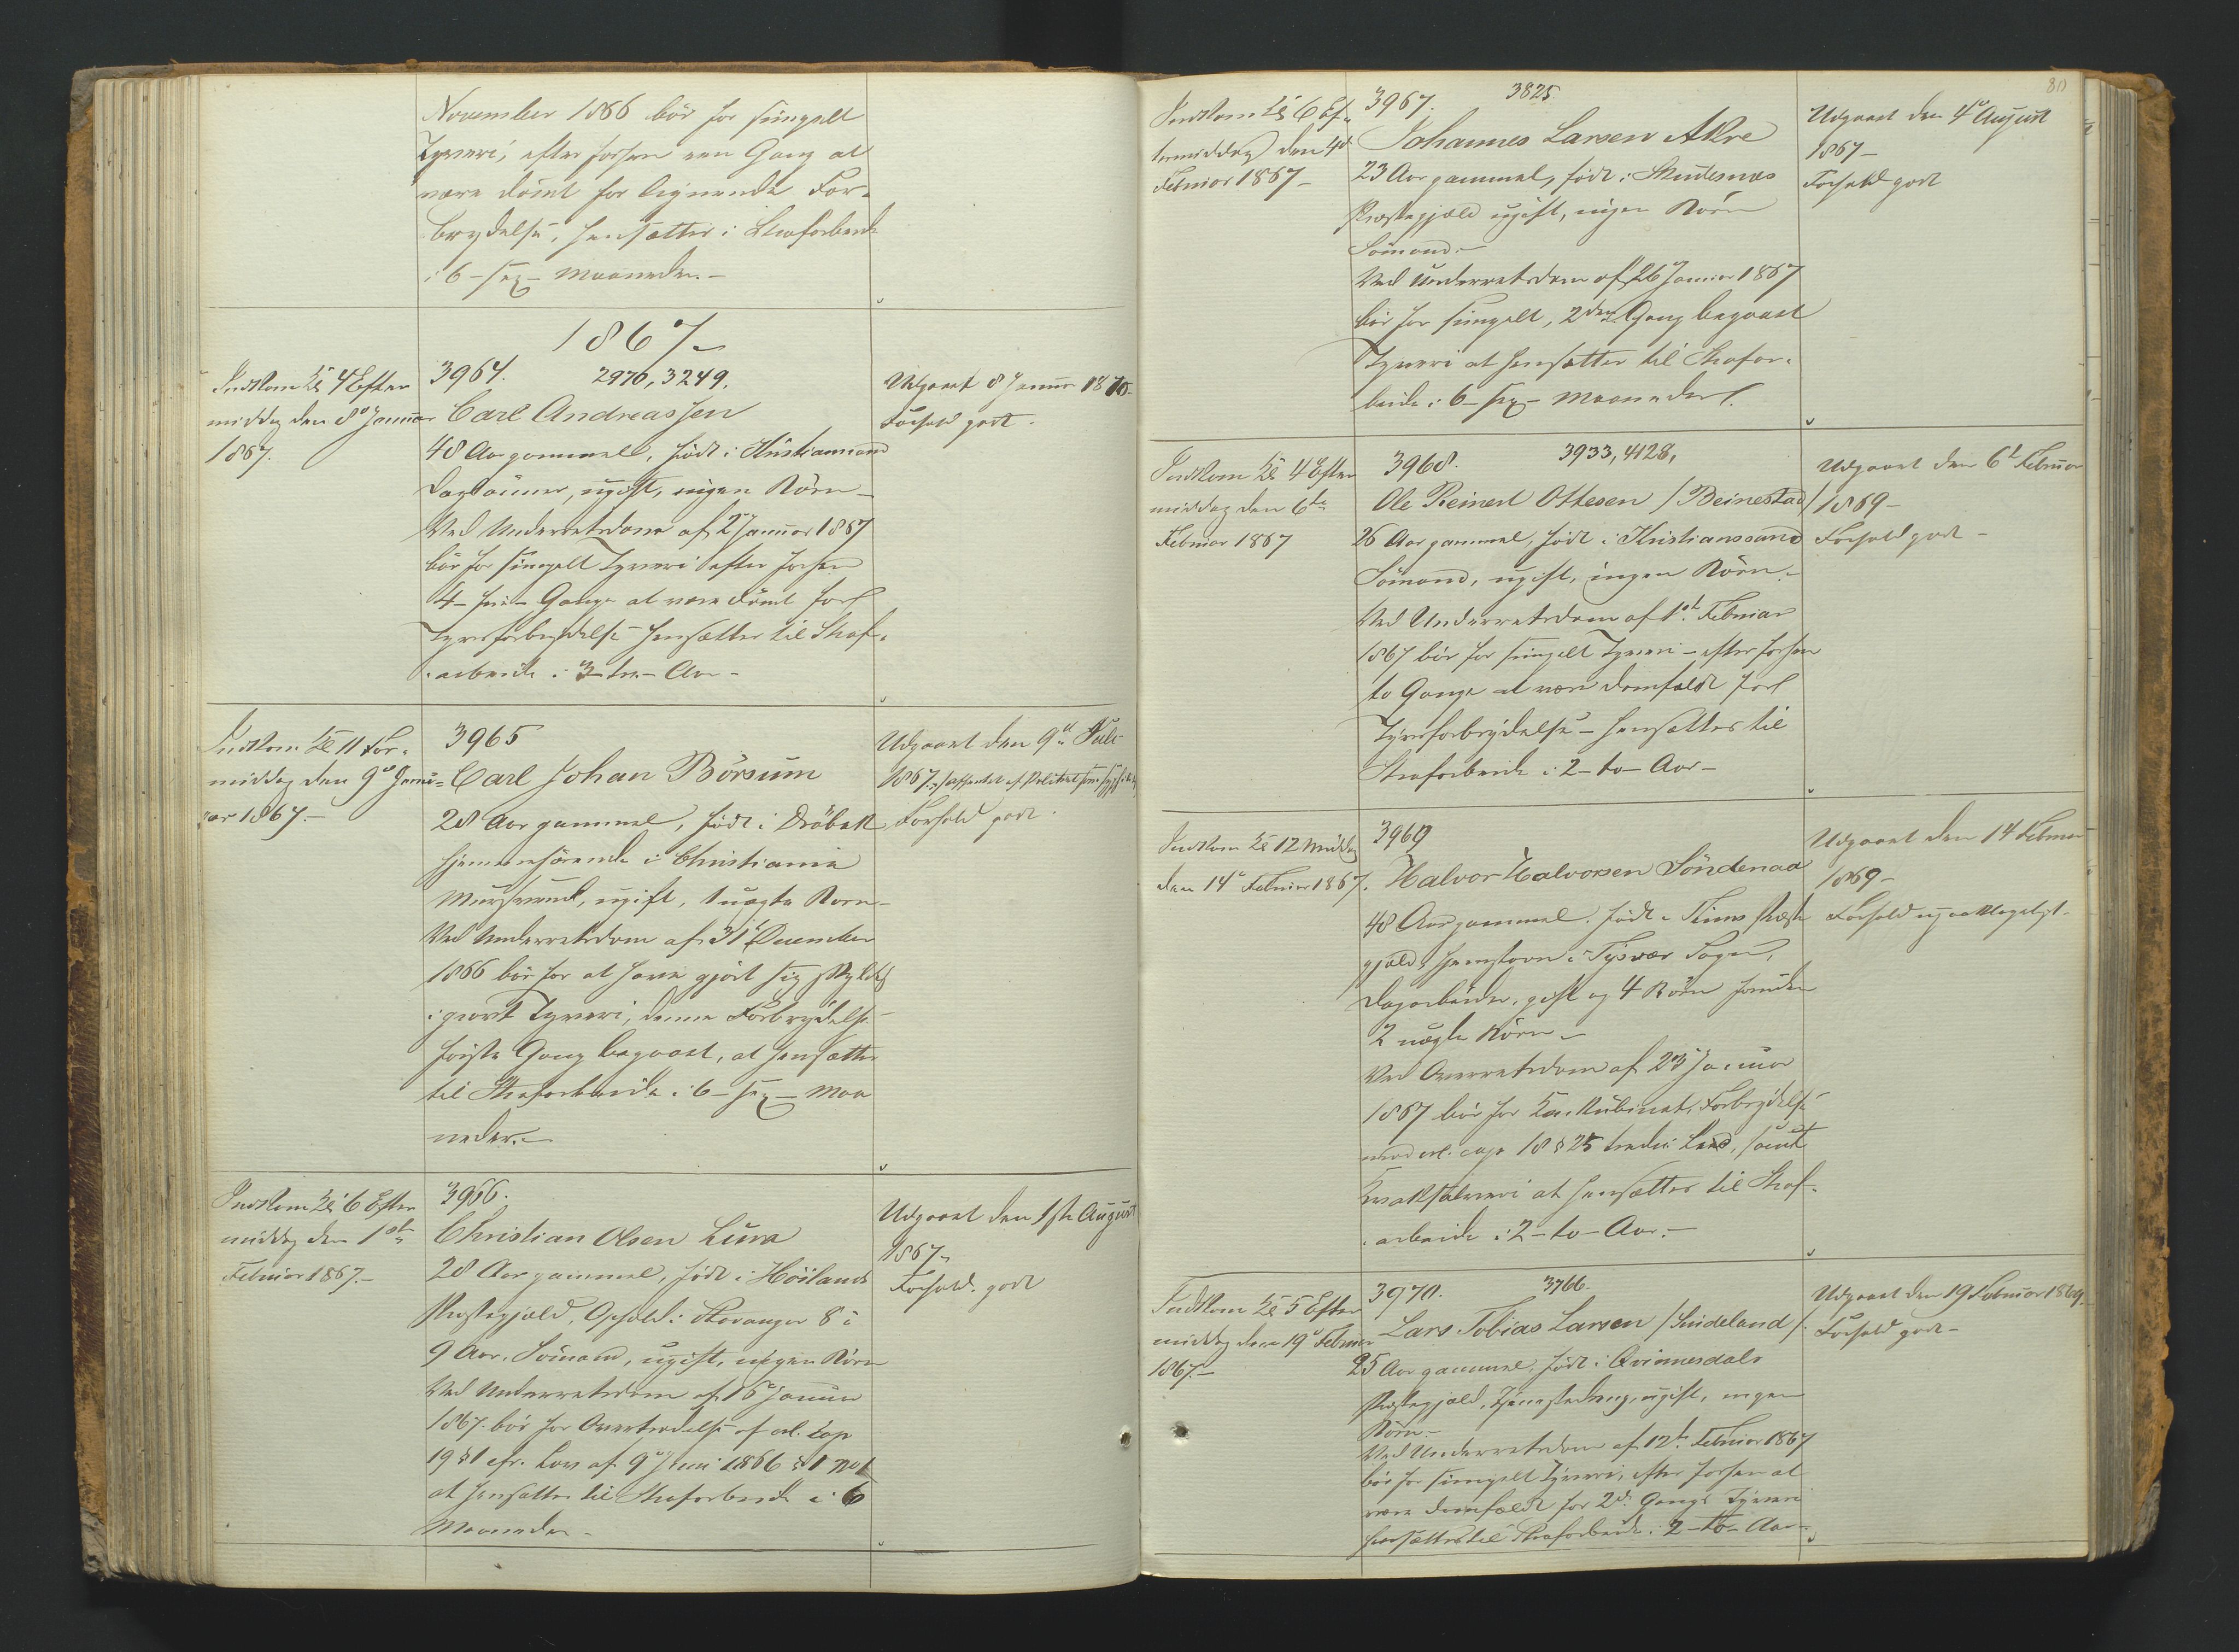 November 1866 bör for simpelt
Tyveri, efter forhen een Gang at
være dömt for lignende For-
brydelse, hensættes i Strafarbeide
i 6 - sex - Maaneder. -
1867 -
Indkom Kl 4 Efter
middag den 8de Januar
1867.
3964. 2970, 3249.
Carl Andreassen
48 Aar gammel, födt i Kristianssand
Dagleönner, ugift, ingen Börn -
Ved Underretsdom af 2 Januar 1867
bör for simpelt Tyveri efter forhen
4 - fire - Gange at være dömt for
Tyvsforbrydelse hensættes til Straf-
arbeide i 3 - tre - Aar -
Udgaaet 8 Januar 1870 -
Forhold godt.
Indkom Kl 11 For-
middag den 9de Janu-
ar 1867. -
3965
Carl Johan Börsum
28 Aar gammel, födt i Dröbak
hjemmehörende i Christiania
Muursvend, ugift, 1 uægte Barn -
Ved Underretsdom af 31 December
1866 bör for at have gjort sig skyldig
i grovt Tyveri, denne Forbrydelse
förste Gang begaaet, at hensættes
til Strafarbeide i 6 - sex - Maa
neder. -
Udgaaet den 9de Juli
1867.
Forhold godt.
Indkom Kl 6 Efter
middag den 1ste
Februar 1867. -
3966.
Christian Olsen Lura
28 Aar gammel, födt i Höilands
Præstegjæld, Ophold i Stavanger 8 à
9 Aar. Sömand, ugift, ingen Börn
Ved Underretsdom af 15 Januar
1867. bör for Overtrædelse af crl. Cap
19 § 1 cfr. Lov af 9 Juni 1866 § 1 No 1
at hensættes til Strafarbeide i 6
Maaneder -
Udgaaet den 1ste August
1867 -
Forhold. godt
80
Indkom Kl 6 Ef-
termiddag den 4de
Februar 1867 -
3967. 3825
Johannes Larsen Akre
23 Aar gammel, födt i Skudesnes
Præstegjæld ugift, ingen Börn
Sömand. -
Ved Underretsdom af 26 Januar 1867
bör for simpelt, 2den Gang begaaet
Tyveri at hensættes til Strafar-
beide i 6 - sex - Maaneder.
Udgaaet den 4de August
1867 -
Forhold godt
Indkom Kl 4 Efter
middag den 6te
Februar 1867
3968. 3933, 4128,
Ole Reinert Ottesen / Beinestad /
26 Aar gammel, födt i Kristianssand
Sömand, ugift, ingen Börn. -
Ved Underretsdom af 1ste Februar
1867 bör for simpelt Tyveri - efter forhen
to Gange at være domfældt for
Tyvsforbrydelse - hensættes til
Strafarbeide i 2 - to - Aar -
Udgaaet den 6te Februar
1869 -
Forhold godt -
Indkom Kl 12 Middag
den 14de Februar 1867.
3969
Halvor Halvorsen Söndenaa
48 Aar gammel. födt i Præste
gjæld, i Tysvær Sogn,
Dagarbeider, gift og 4 Börn foruden
2 uægte Börn -
Ved Overretsdom af 23 Januar
1867 bör for Konkubinat, Forbrydelse
mod crl. cap 18 § 25 tredie Led, samt
Kvaksalveri at hensættes til Straf-
arbeide i 2 - to - Aar. -
Udgaaet den 14 Februar
1869 -
Forhold upaaklageligt.
Indkom Kl 5 Efter
middag den 19de Februar
1867. -
3970. 3766
Lars Tobias Larsen / Sindeland /
25 Aar gammel, födt i Qvinnesdals
Præstegjæld, Tjenestedreng, ugift, ingen
Börn. -
Ved Underretsdom af 12te Februar 1867
bör for simpelt Tyveri, efter forhen at
være domfældt for 2den Gangs Tyveri
hensættes til Strafarbeide i 2 - to - Aar -
Udgaaet den 19 Februar 1869.
Forhold godt -